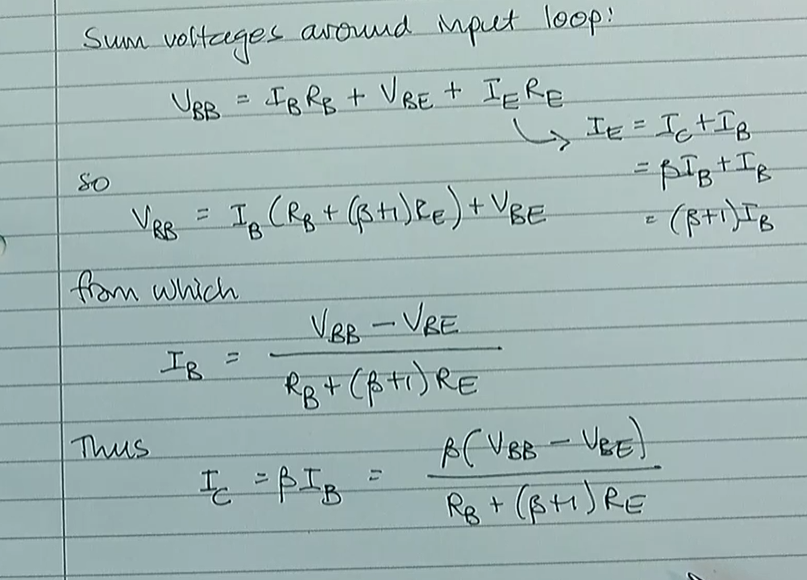 Sum voltages around input loop:
V_BB = I_B R_B + V_BE + I_E R_E
↳ I_E = I_C + I_B
= βI_B + I_B
= (β+1)I_B
so
V_BB = I_B (R_B + (β+1)R_E) + V_BE
from which
I_B = (V_BB − V_BE) / (R_B + (β+1) R_E)
Thus
I_C = βI_B = β(V_BB − V_BE) / (R_B + (β+1) R_E)